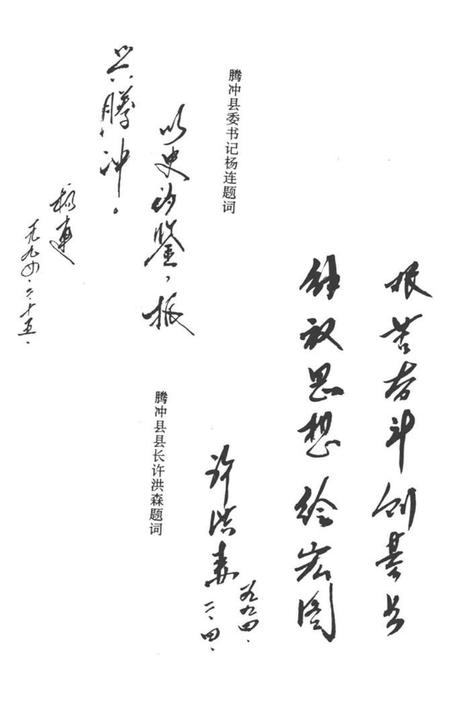 艰苦奋斗创基业
解放思想绘宏图
许洪森
一九九四.
二.四.
腾冲县县长许洪森题词
腾冲县委书记杨连题词
以史为鉴，振
兴腾冲。
杨连
一九九四.二.十五.